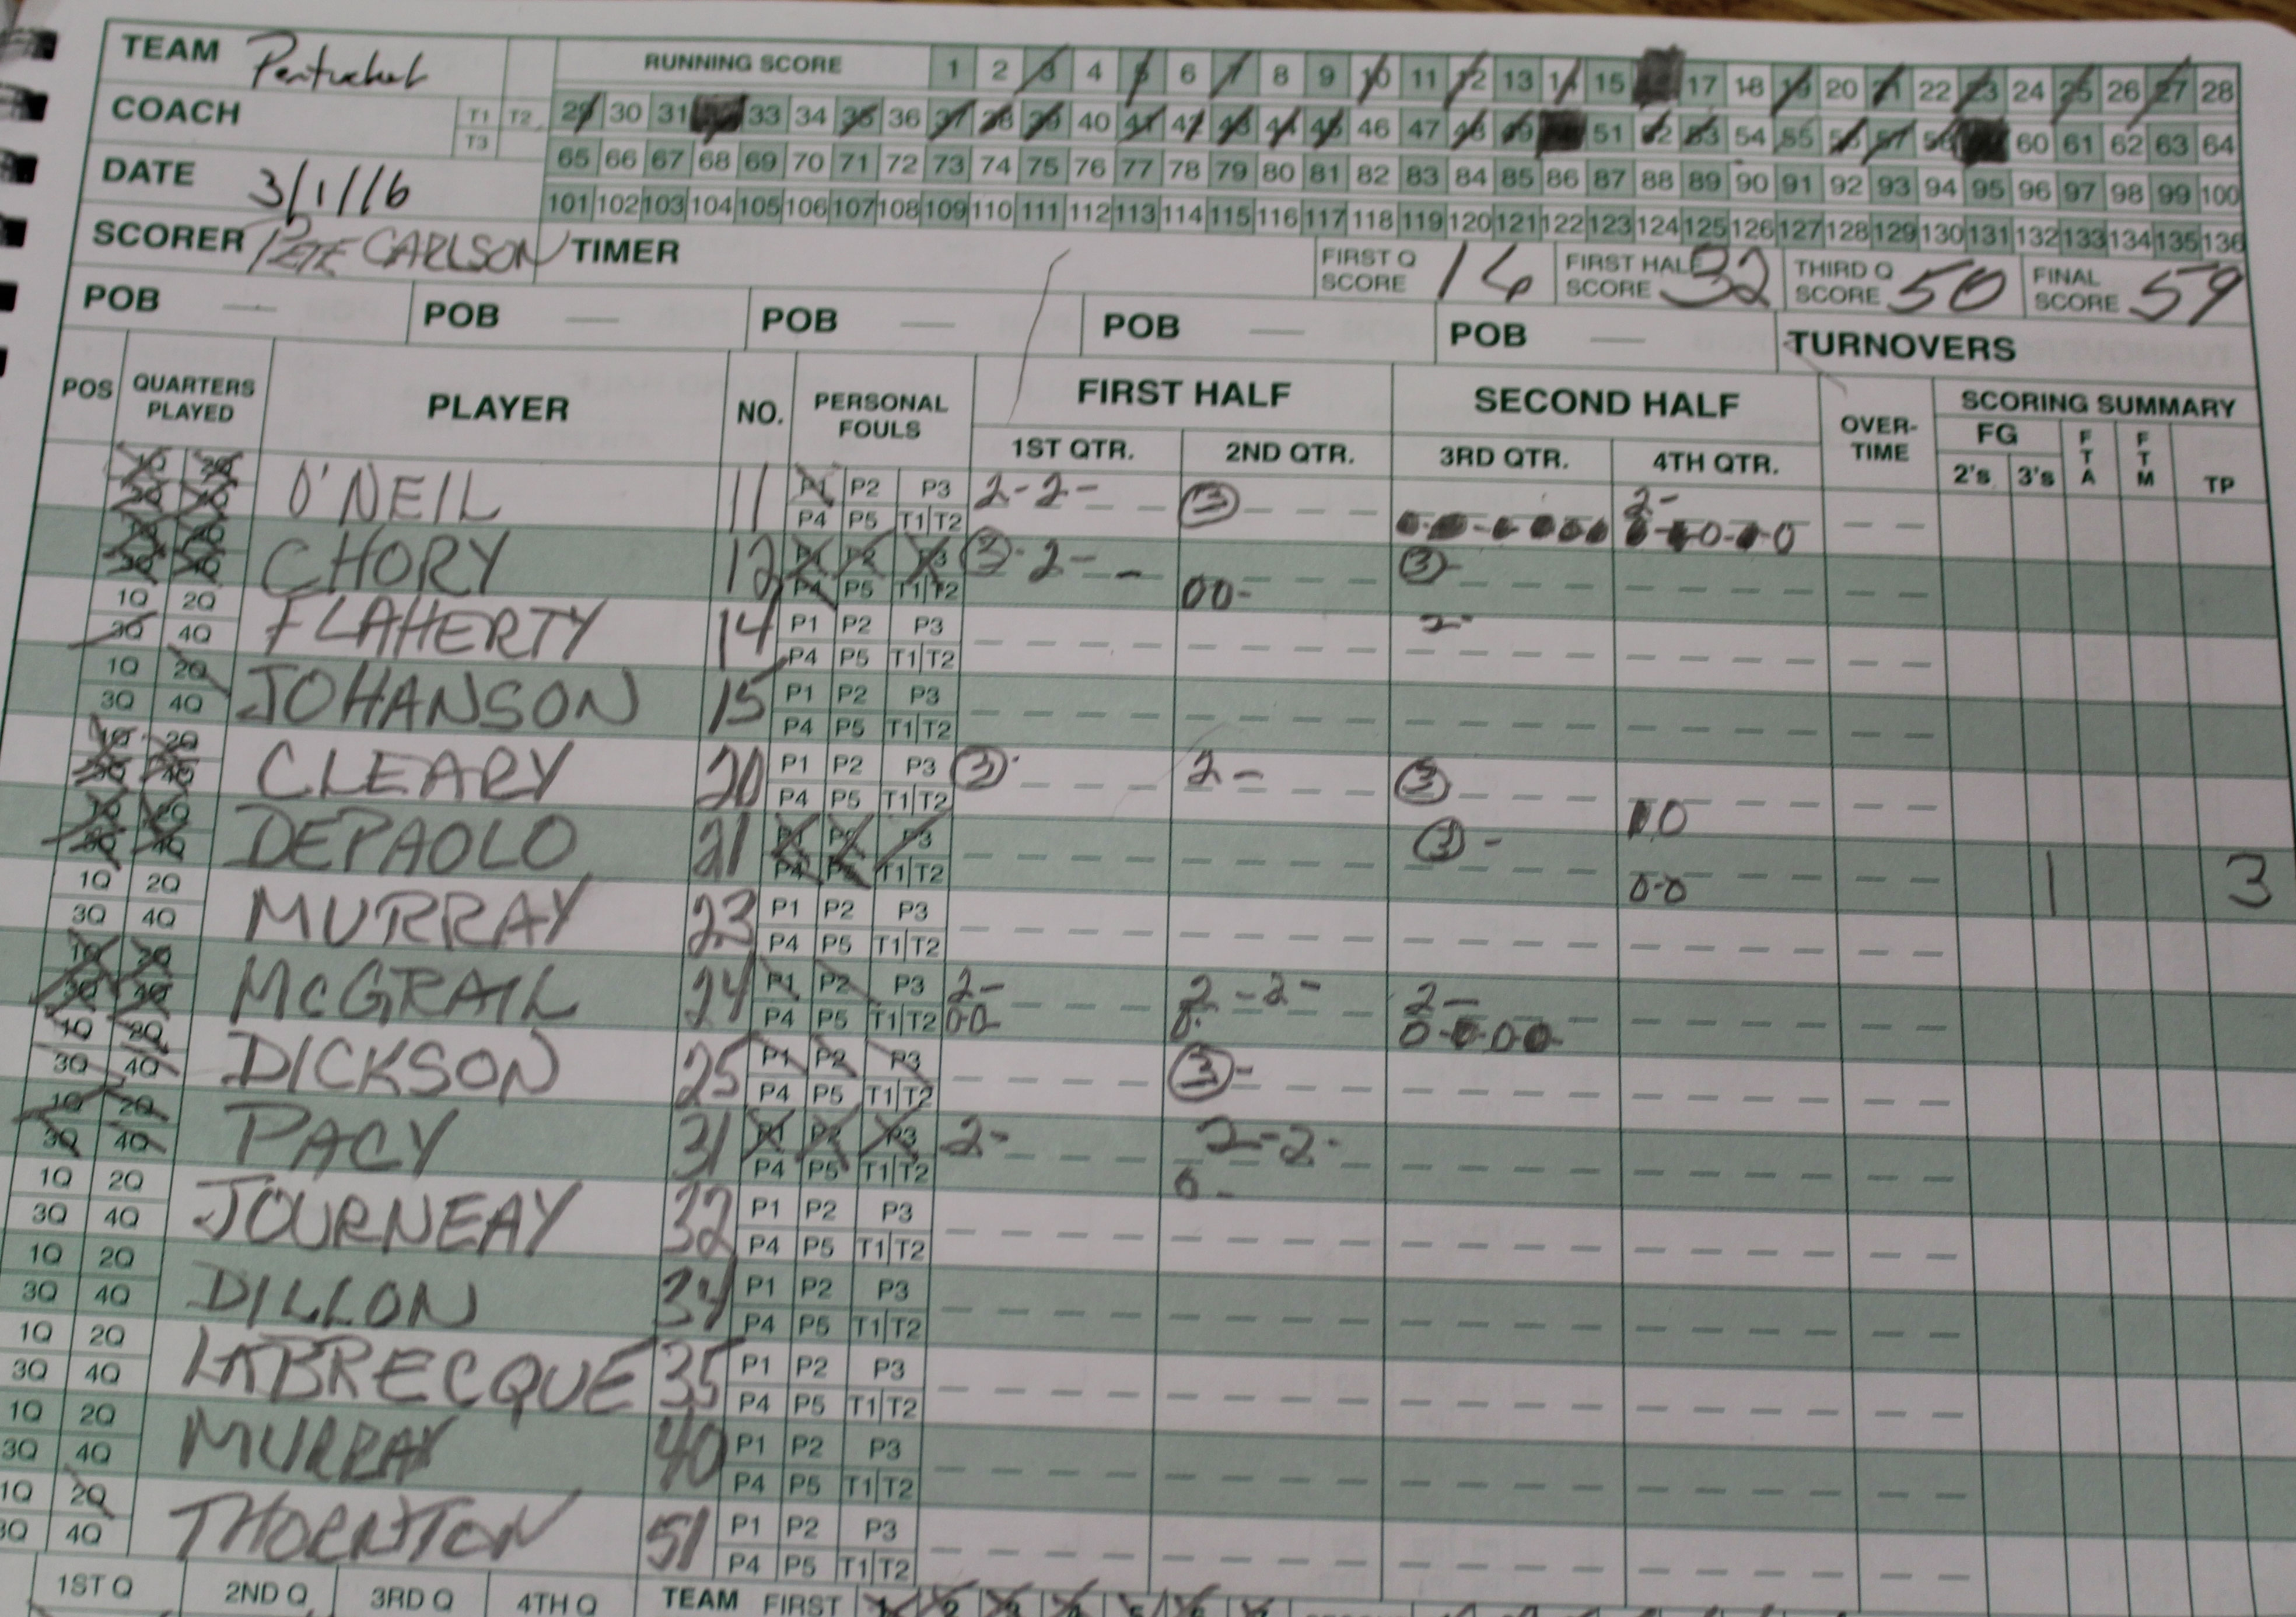 TEAM Pentucket RUNNING SCORE 1 2 3 4 5 6 7 8 9 10 11 12 13 14 15 17 18 19 20 21 22 23 24 25 26 27 28
COACH T1 T2 29 30 31 33 34 35 36 37 38 39 40 41 42 43 44 45 46 47 48 49 51 52 53 54 55 56 57 58 60 61 62 63 64
T3
65 66 67 68 69 70 71 72 73 74 75 76 77 78 79 80 81 82 83 84 85 86 87 88 89 90 91 92 93 94 95 96 97 98 99 100
DATE 3/1/16 101 102 103 104 105 106 107 108 109 110 111 112 113 114 115 116 117 118 119 120 121 122 123 124 125 126 127 128 129 130 131 132 133 134 135 136
SCORER PETE CARLSON TIMER FIRST Q SCORE 16 FIRST HALF SCORE 32 THIRD Q SCORE 50 FINAL SCORE 59
POB — POB — POB — POB — POB — TURNOVERS
POS QUARTERS PLAYED PLAYER NO. PERSONAL FOULS FIRST HALF SECOND HALF OVER-TIME SCORING SUMMARY
1ST QTR. 2ND QTR. 3RD QTR. 4TH QTR. FG FTA FTM TP
2's 3's
1Q 2Q O'NEIL 11 P1 P2 P3 2-2- 3 2-
3Q 4Q P4 P5 T1 T2
1Q 2Q CHORY 12 P1 P2 P3 3 2- 3
3Q 4Q P4 P5 T1 T2 00-
1Q 2Q FLAHERTY 14 P1 P2 P3 2-
3Q 4Q P4 P5 T1 T2
1Q 2Q JOHANSON 15 P1 P2 P3
3Q 4Q P4 P5 T1 T2
1Q 2Q CLEARY 20 P1 P2 P3 3 2- 3
3Q 4Q P4 P5 T1 T2
1Q 2Q DEPAOLO 21 P1 P2 P3 3 - 1 3
3Q 4Q P4 P5 T1 T2 0-0
1Q 2Q MURRAY 23 P1 P2 P3
3Q 4Q P4 P5 T1 T2
1Q 2Q McGRAIL 24 P1 P2 P3 2- 2-2- 2-
3Q 4Q P4 P5 T1 T2 00- 0- 0-0-00
1Q 2Q DICKSON 25 P1 P2 P3 3 -
3Q 4Q P4 P5 T1 T2
1Q 2Q PACY 31 P1 P2 P3 2- 2-2-
3Q 4Q P4 P5 T1 T2 0-
1Q 2Q JOURNEAY 32 P1 P2 P3
3Q 4Q P4 P5 T1 T2
1Q 2Q DILLON 34 P1 P2 P3
3Q 4Q P4 P5 T1 T2
1Q 2Q LABRECQUE 35 P1 P2 P3
3Q 4Q P4 P5 T1 T2
1Q 2Q MURRAY 40 P1 P2 P3
3Q 4Q P4 P5 T1 T2
1Q 2Q THORNTON 51 P1 P2 P3
3Q 4Q P4 P5 T1 T2
1ST Q 2ND Q 3RD Q 4TH Q TEAM FIRST 1 2 3 4 5 6 7